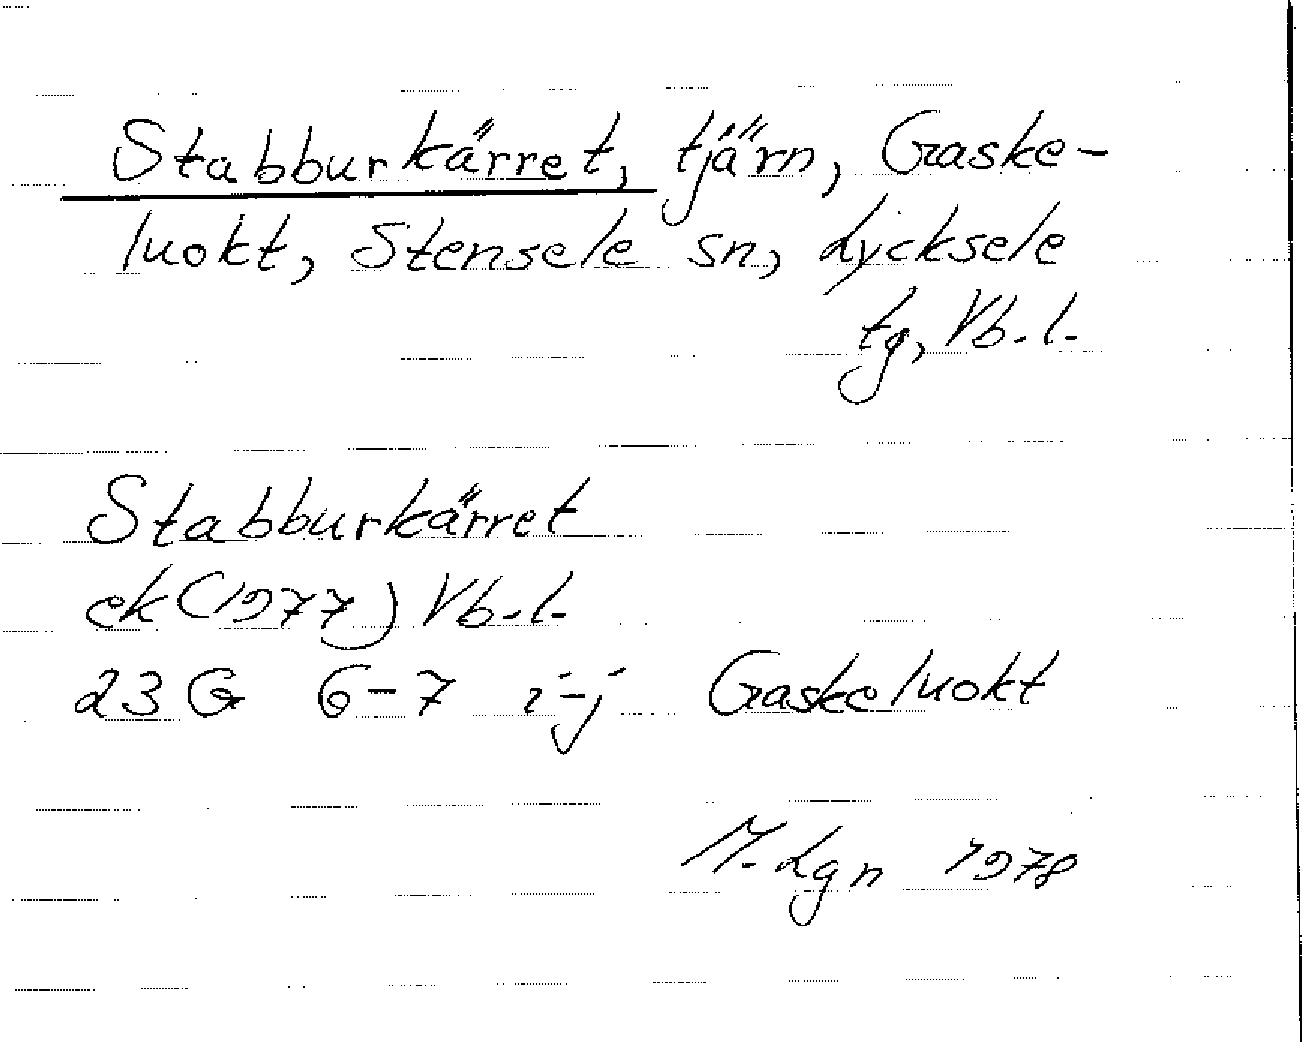 Stabburkärret, tjärn, Gaske-
luokt, Stensele sn, Lycksele
tg, Vb.l.
Stabburkärret
ek (1977) Vb.l.
23 G 6-7 i-j Gaskeluokt
M. Lgn 1978